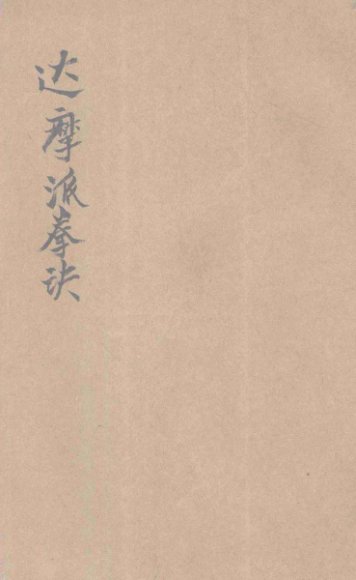 达摩派拳诀